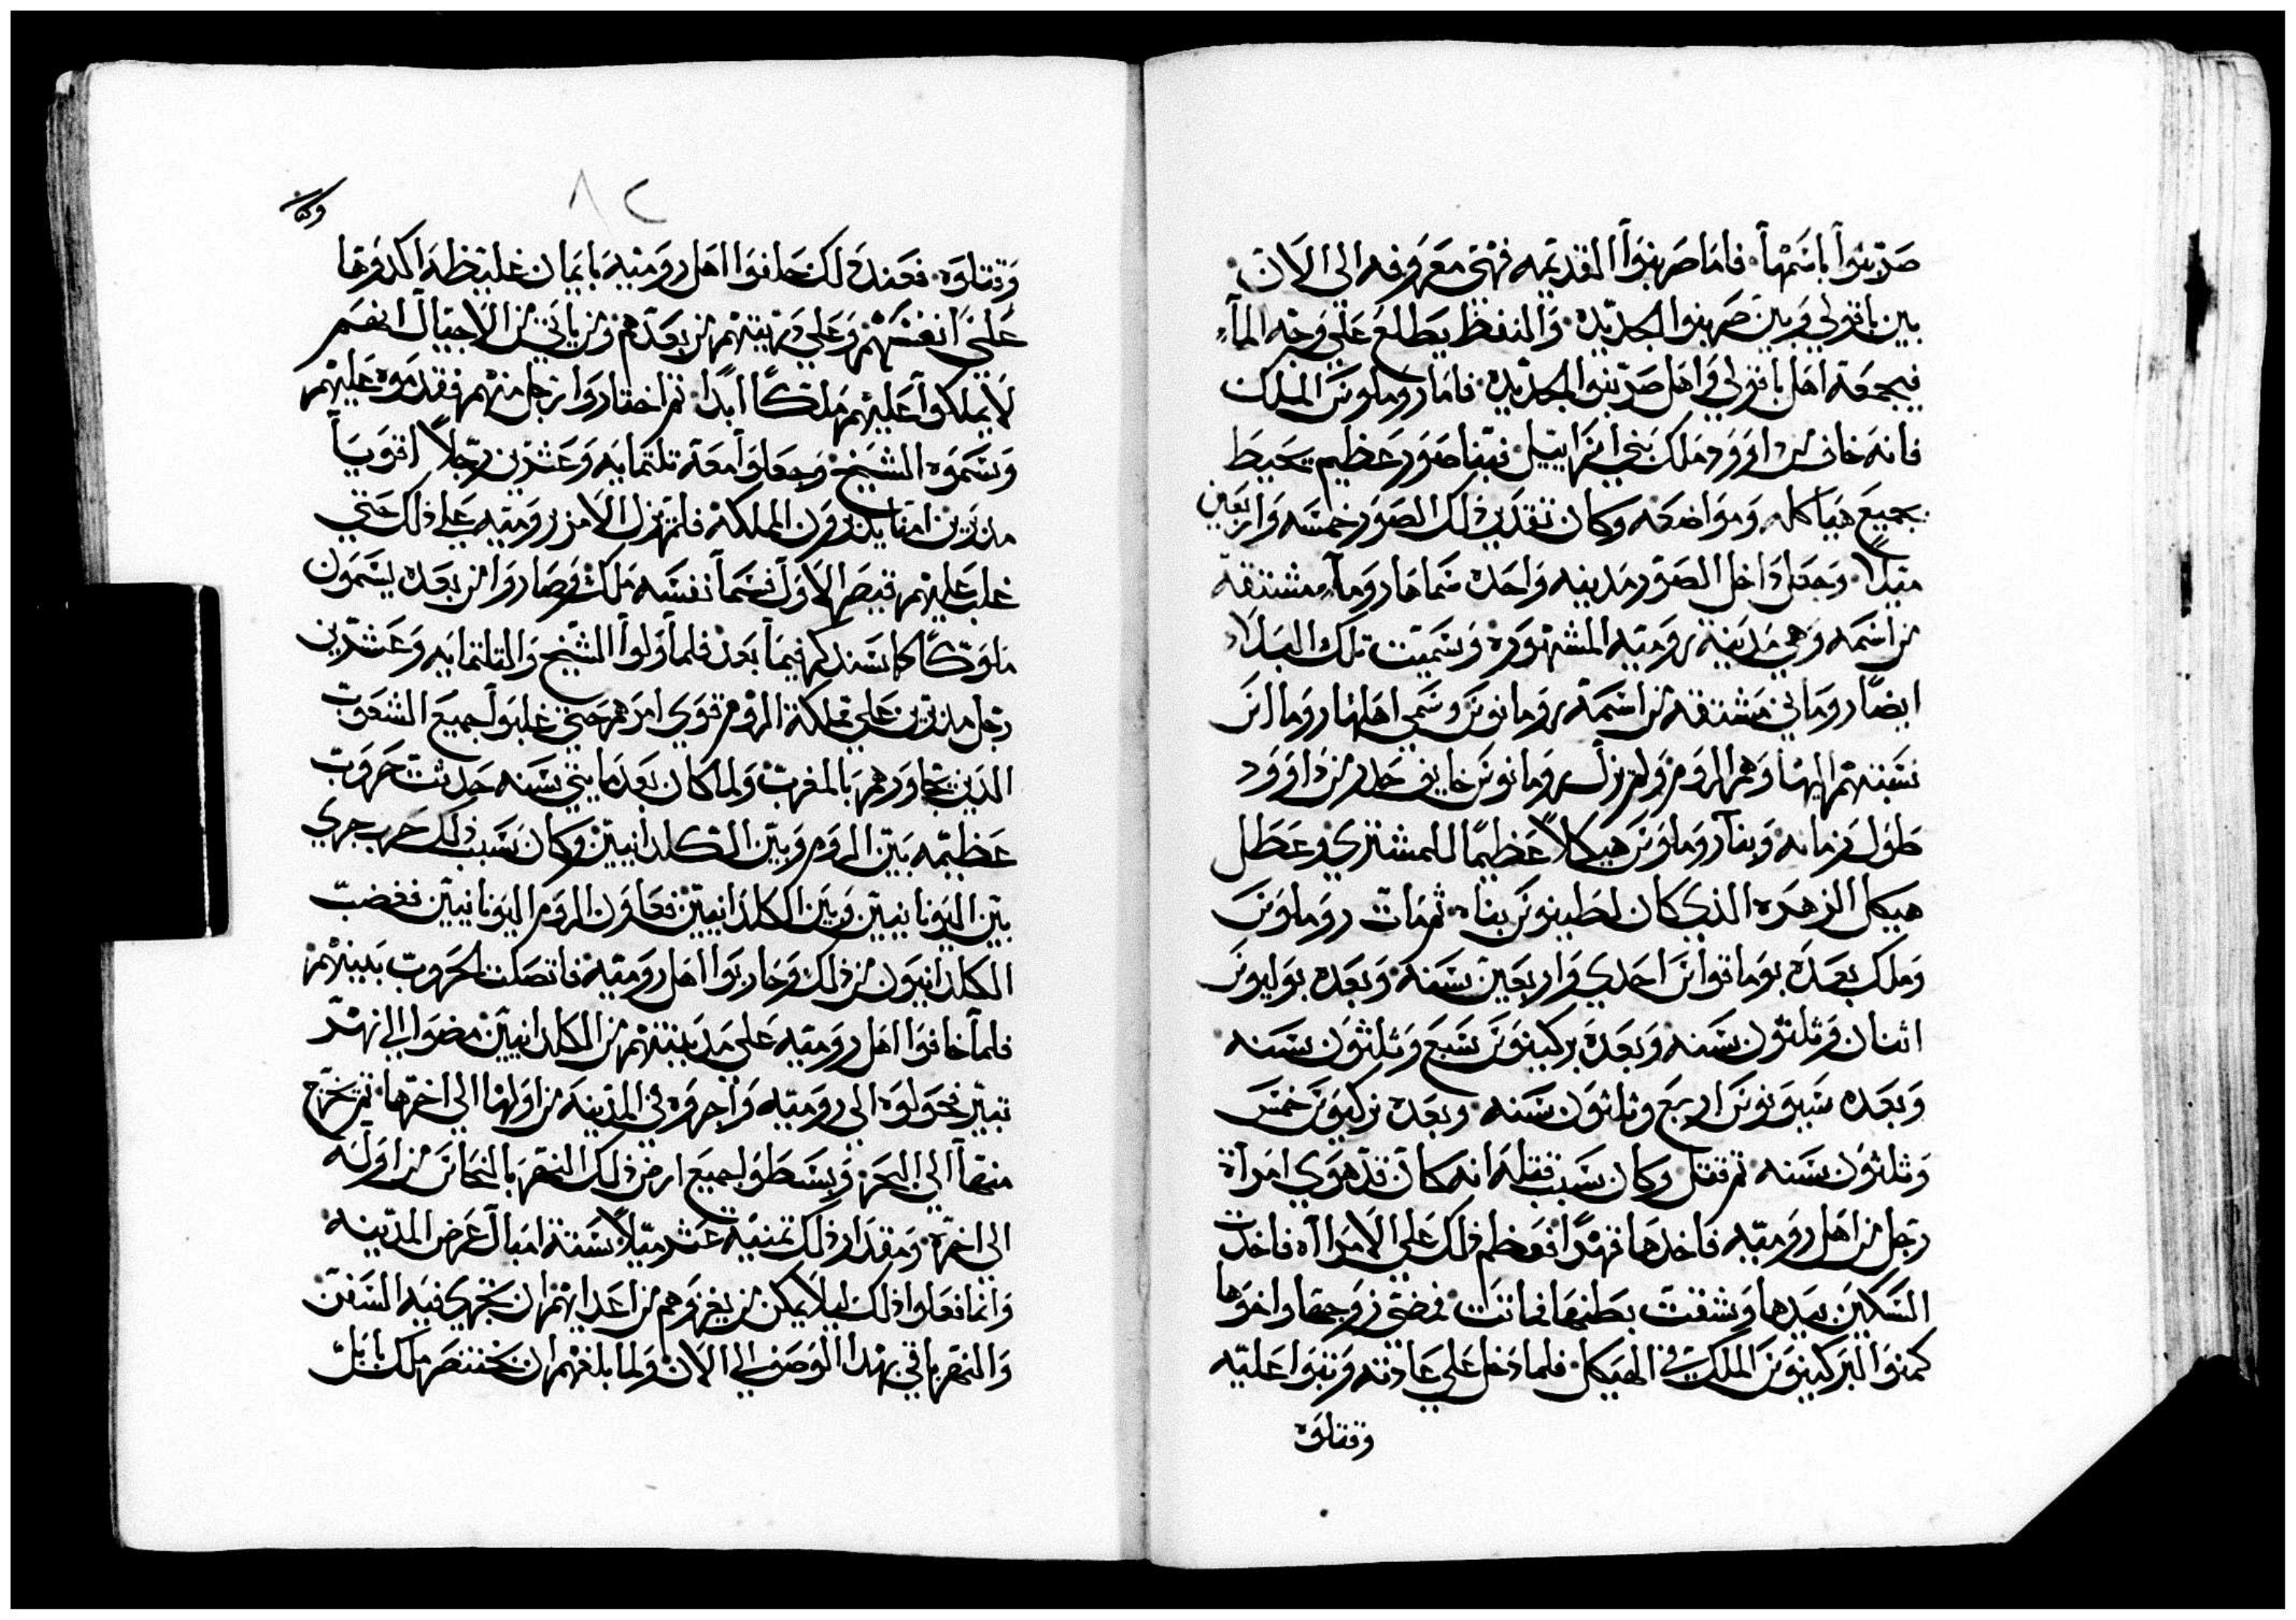 صرينوا باسمها فاما صرينوا القديمه فهي معروفه الى الان
بين بافولي وبين صرينوا الجديده والنفط يطلع على وجه المآء
فيجمعه اهل بافولي واهل صرينوا الجديده فاما روملوس الملك
فانه خاف من داوود ملك بني اسراييل فبنا صور عظيم يحيط
بجميع هياكله ومواضعه وكان تقدير ذلك الصور خمسه واربعين
ميلاً وجعل داخل الصور مدينه واحده سماها روما مشتقه
من اسمه وهي مدينة روميه المشهوره وسميت تلك البلاد
ايضاً روماني مشتقه من اسمه رومانوس وسمي اهلها رومانس
نسبتهم اليها وهم الروم ولم يزل رومانوس خايف حدر من داوود
طول زمانه وبنا روملوس هيكلاً عظيماً للمشتري وعطل
هيكل الزهره الذي كان لطينوس بناه ثم مات روملوس
وملك بعده بوماتواس احدي واربعين سنه وبعده بوليوس
اثنان وثلثون سنه وبعده بركينوس سبع وثلثون سنه
وبعده سيبونوس اربع وثلثون سنه وبعده تركيوس خمس
وثلثون سنه ثم قتل وكان سبب قتله انه كان قد هوي امرأة
رجل من اهل روميه فاخدها قهراً فعظم ذلك على الامراآه فاخدت
السكين بيدها وشقت بطنها فماتت فمضى زوجها واخوها
كمنوا لبركينوس الملك في الهيكل فلما دخل على عادته وثبوا عليه
وقتلوه
٨٢
وكان
وقتلوه فعند ذلك حلفوا اهل روميه بايمان غليظه اكدوها
على انفسهم وعلى دريتهم من بعدهم ومن ياتي من الاجيال انهم
لا يملكوا عليهم ملكاً ابداً ثم اختاروا رجل منهم فقدموه عليهم
وسموه الشيخ وجعلوا معه تلتمايه وعشرين رجلاً اقويآ
مدبرين امنا يدبرون المملكه فلم يزل الامر بروميه على ذلك حتي
غلب عليهم قيصر الاول فسما نفسه ملك وصاروا من بعده يسمون
ملوكاً كما سندكر فيما بعد فلما ولوا الشيخ والتلتمايه وعشرين
رجل مدبرين على مملكة الروم قوي امرهم حتي غلبوا لجميع الشعوب
الذين تجاورهم بالمغرب ولما كان بعد مايتي سنه حدثت حروب
عظيمه بين الروم وبين الكلدانيين وكان سبب ذلك حرب جري
بين اليونانيين وبين الكلدانيين فعاون الروم اليونانيين فغضب
الكلدانيون من ذلك وحاربوا اهل روميه فاتصلت الحروب بينهم
فلما خافوا اهل روميه على مدينتهم من الكلدانيين مضوا الى نهر
تيبر فحولوه الى روميه واجروه في المدينه من اولها الي اخرها ثم يخرج
منها الي البحر وبسطوا لجميع ارض ذلك النهر بالنحاس من اوله
الى اخره ومقدار ذلك ثمنية عشر ميلاً ستة اميال عرض المدينه
وانما فعلوا ذلك ليلا يمكن من يغزوهم من اعدايهم ان تجري فيه السفن
والنهر باقي بهدا الوصف الي الان ولما بلغهم ان بختنصر ملك بابل